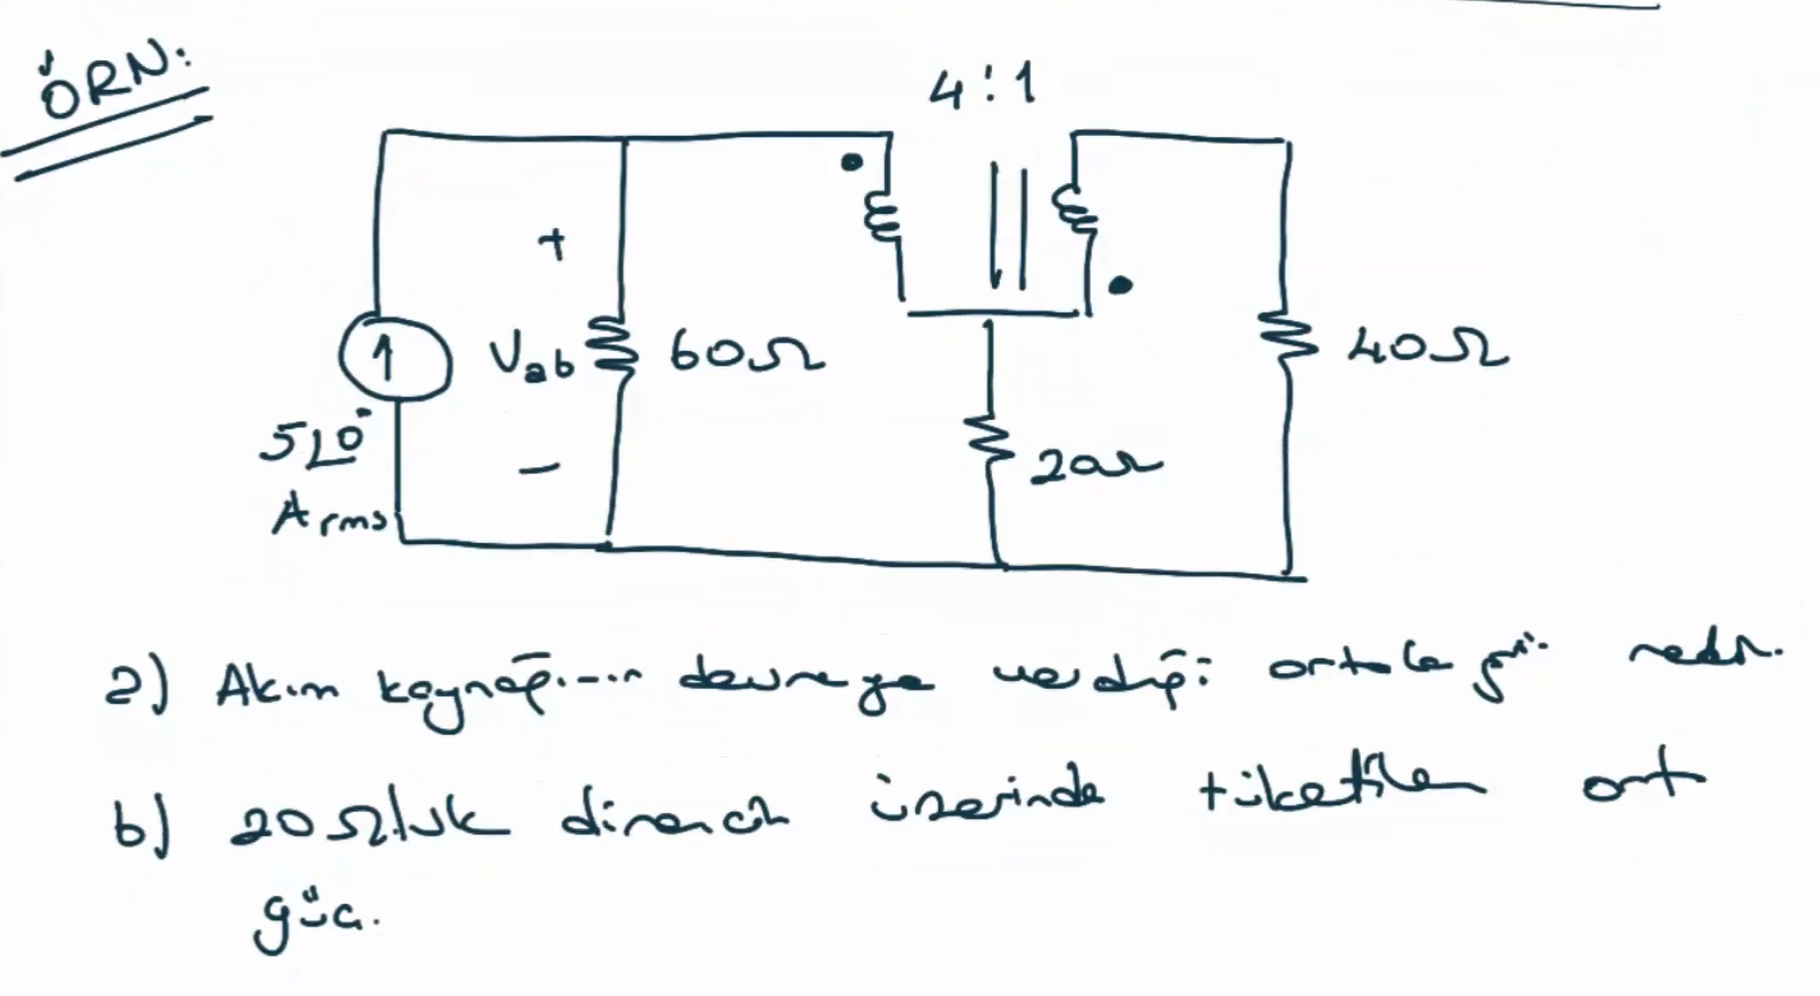 ÖRN:
4:1
+
Vab
60Ω
40Ω
5∠0°
Arms
-
20Ω
a) Akım kaynağının devreye verdiği ortala güç nedir.
b) 20Ω'luk direncin üzerinde tüketilen ort
güç.